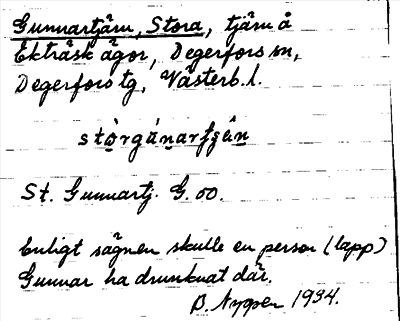 Gunnartjärn, Stora, tjärn å
Ekträsk ägor, Degerfors sn,
Degerfors tg, Västerb. l.
stòrgánarfʂɛ̂n
St. Gunnartj. G. 00.
Enligt sägnen skulle en person (lapp)
Gunnar ha drunknat där.
B. Nygren 1934.